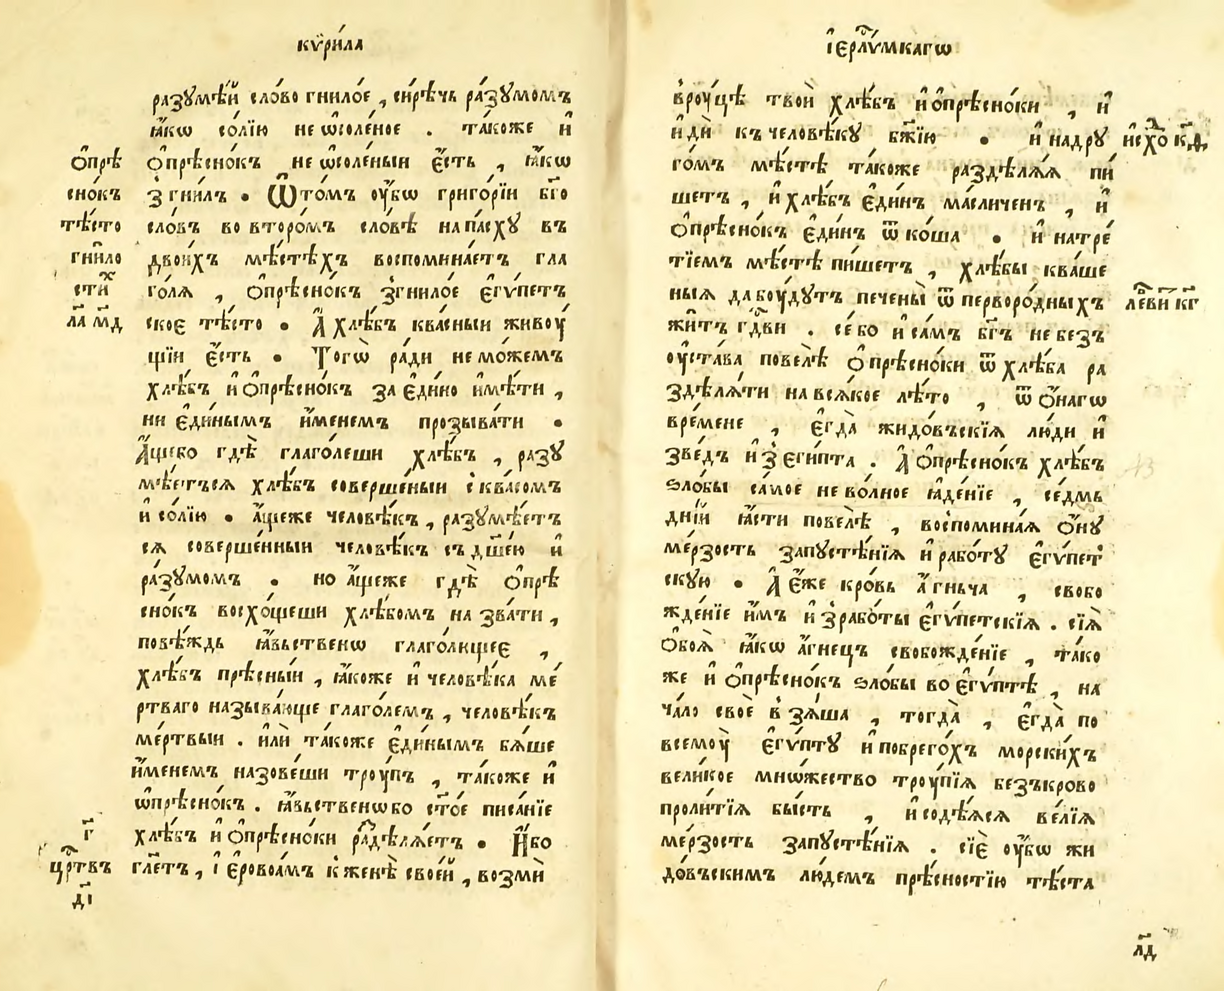 кѷри́ла
разꙋмѣ́й сло́во гнило́е , си́рѣчь ра́зꙋмомъ
ꙗ҆́кѡ со́лїю не ѡ҆соле́ное . та́коже и҆
ѻ҆прѣсно́къ не ѡ҆соле́ныи є҆́сть , ꙗ҆́кѡ
з̾гни́лъ . Ѿто́мъ ᲂу҆́бѡ григо́рїи бг҃о
сло́въ во второ́мъ сло́вѣ напа́схꙋ въ
двои́хъ мѣ́стѣхъ воспомина́етъ гла
го́лѧ , ѻ҆прѣсно́къ з̾гнило́е є҆гѵ́петъ
ское тѣ́сто . А҆ хлѣ́бъ ква́сныи живоу́
щїи є҆́сть . Того̀ ра́ди не мо́жемъ
хлѣ́бъ и҆ ѻ҆прѣсно́къ за є҆ди́но и҆мѣ́ти ,
ни є҆ди́нымъ и҆́менемъ прозыва́ти .
А҆́щебо гдѣ̀ глаго́леши хлѣ́бъ , разꙋ
мѣ́етъсѧ хлѣ́бъ соверше́ныи с̾ ква́сомъ
и҆ со́лїю . а҆́щеже человѣ́къ , разꙋмѣ́етъ
сѧ соверше́нныи человѣ́къ съ дш҃е́ю и҆
ра́зꙋмомъ . но а҆́щеже гдѣ̀ ѻ҆прѣ
сно́къ восхо́щеши хлѣ́бомъ на зва́ти ,
повѣ́ждь ꙗ҆́вьственѡ глаго́лющее ,
хлѣ́бъ прѣ́сныи , ꙗ҆́коже и҆ человѣ́ка ме́
ртваго называ́юще глаго́лемъ , человѣ́къ
ме́ртвыи . и҆лѝ та́коже є҆ди́нымъ бѧ́ше
и҆́менемъ назове́ши троу́пъ , та́коже и҆
ѡ҆прѣсно́къ . ꙗ҆́вьственѡбо ст҃о́е писа́нїе
хлѣ́бъ и҆ ѻ҆прѣсно́ки раⷥдѣлѧ́етъ . И҆́бо
гл҃етъ , і҆ є҆ровоа́мъ к̾ женѣ̀ свое́й , возмѝ
ѻ҆прѣ
сно́къ
тѣ́сто
гни́ло
цр҃твъ
д҃і
і҆ерⷭ҇л꙯и́мкагѡ
вроу́цѣ твоѝ хлѣ́бъ и҆ ѻ҆прѣсно́ки , и҆
и҆дѝ къ человѣ́кꙋ бж҃їю . и҆ надрꙋ
го́мъ мѣ́стѣ та́коже раздѣлѧ́ѧ пи́
шетъ , и҆ хлѣ́бъ є҆ди́нъ ма́сличенъ , и҆
ѻ҆прѣсно́къ є҆ди́нъ ѿ ко́ша . и҆ натре́
тїемъ мѣ́стѣ пи́шетъ , хлѣ́бы ква́ше
ныѧ да боу́дꙋтъ пече́ны ѿ перворо́дныхъ
жи́тъ гдⷭ҇ви . се́ бо и҆ са́мъ бг҃ъ не безъ
ᲂу҆ста́ва повелѣ̀ ѻ҆прѣсно́ки ѿ хлѣ́ба ра
здѣлѧ́ти на всѧ́кое лѣ́то , ѿ ѻ҆́нагѡ
вре́мене , є҆гда̀ жидо́въскїѧ лю́ди и҆
зве́дъ и҆з̾ є҆ги́пта . А҆ ѻ҆прѣсно́къ хлѣ́бъ
ѕло́бы са́мое не во́лное ꙗ҆де́нїе , се́дмь
дні́й ꙗ҆́сти повелѣ̀ , воспомина́ѧ ѻ҆́нꙋ
ме́рзость запꙋстѣ́нїѧ и҆ рабо́тꙋ є҆гѵ́пет
скꙋю . А҆ є҆́же кро́вь а҆́гньча , свобо
жде́нїе и҆̀мъ и҆з̾рабо́ты є҆гѵ́петскїѧ . сїѧ̀
ѻ҆боѧ̀ ꙗ҆́кѡ а҆́гнецъ свобожде́нїе , та́ко
же и҆ ѻ҆прѣсно́къ ѕло́бы во є҆гѵ́птѣ , на
ча́ло своѐ в̾зѧ́ша , тогда̀ , є҆гда̀ по
всемоу̀ є҆гѵ́птꙋ и҆ побрего́хъ морски́хъ
вели́кое мнѡ́жество троу́пїѧ безъкрово
проли́тїѧ бы́сть , и҆ содѣ́ѧсѧ ве́лїѧ
ме́рзость запꙋстѣ́нїѧ . сїѐ ᲂу҆́бѡ жи
до́въскимъ лю́демъ прѣсностїю тѣ́ста
и҆схо́ⷣ к҃д
леѵи́ⷮ к҃г
л҃д